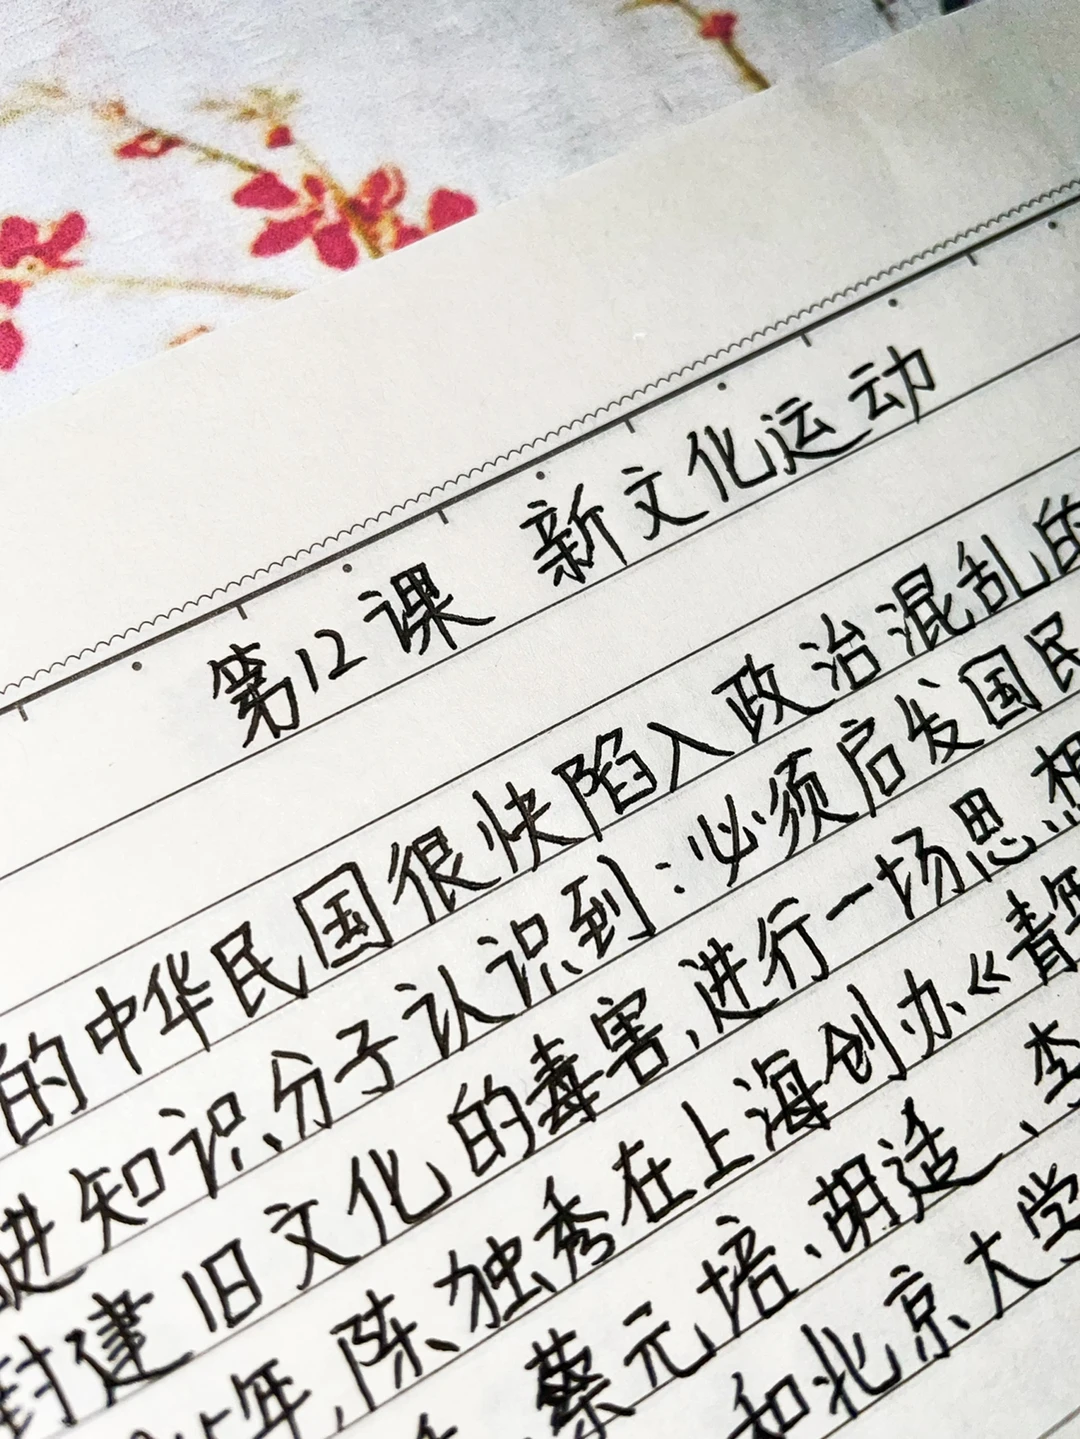 第12课 新文化运动
的中华民国很快陷入政治混乱的
进知识分子认识到:必须启发国民
封建旧文化的毒害,进行一场思想
年,陈独秀在上海创办《青年
蔡元培、胡适、李
和北京大学